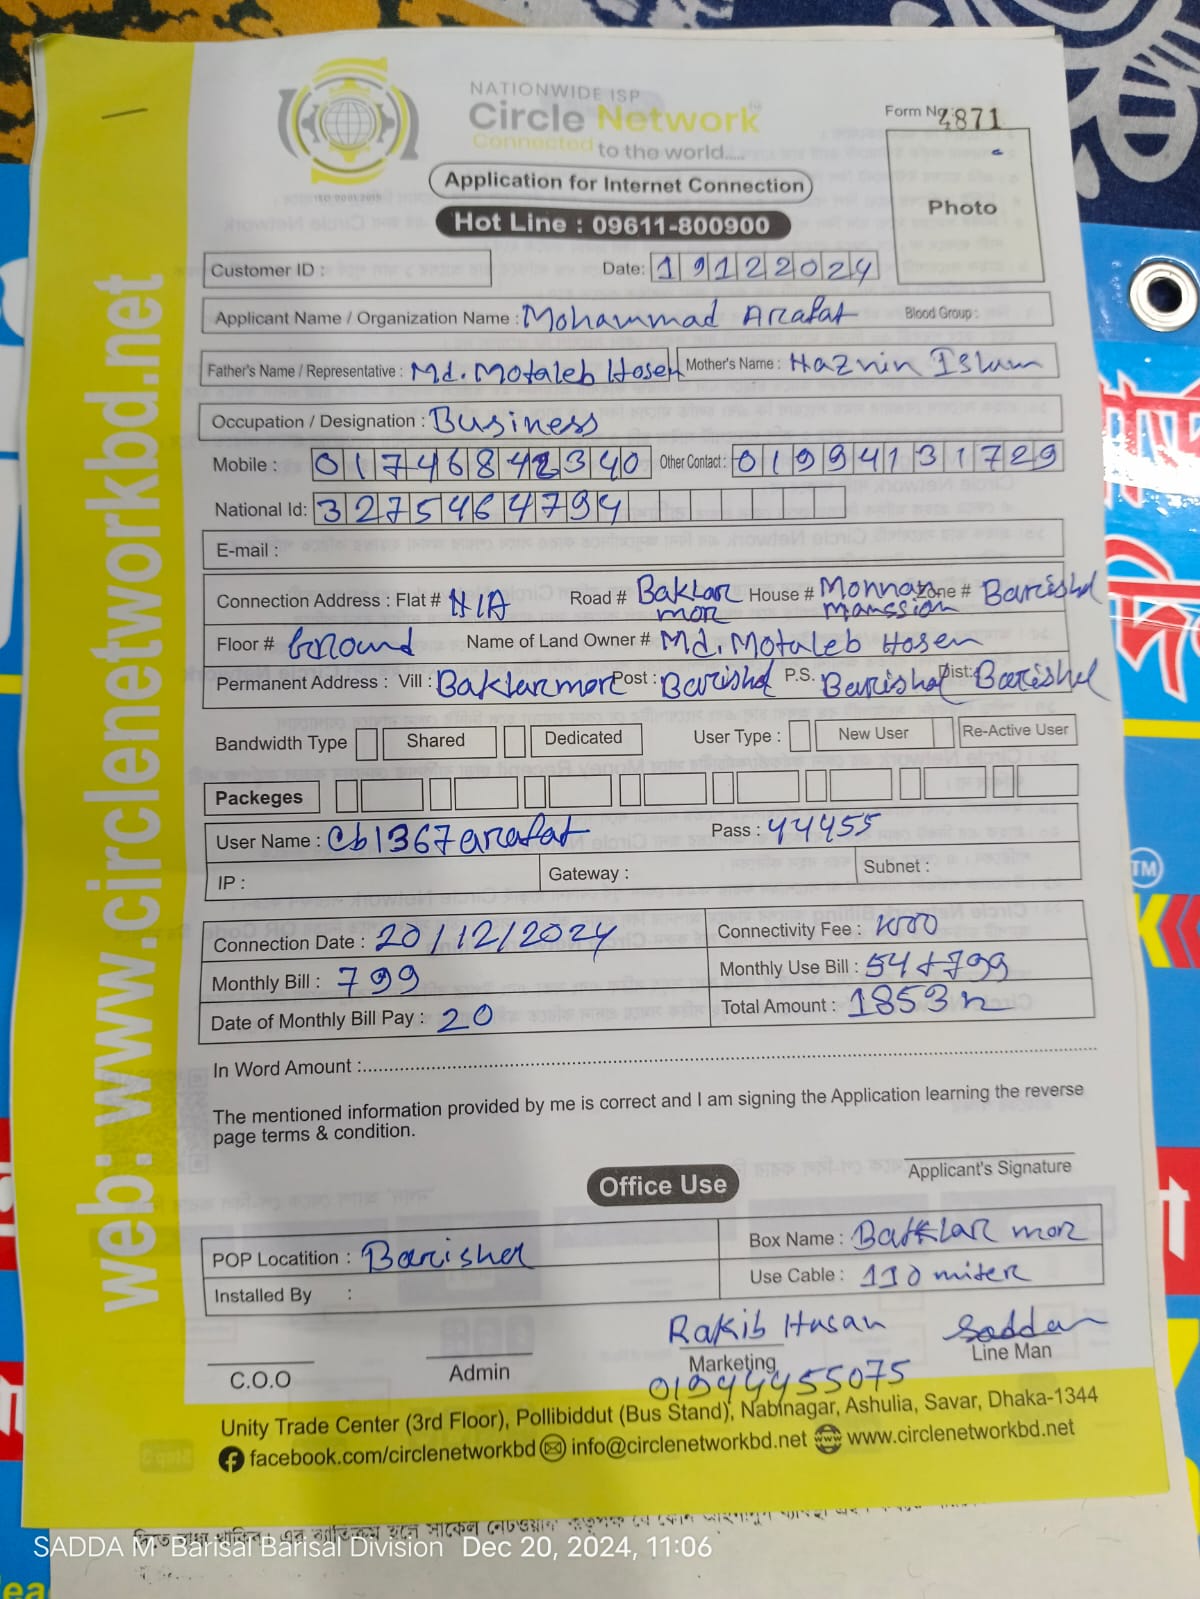 NATIONWIDE ISP
Circle Network
Connected to the world.....
Form No: 4871
Application for Internet Connection
Photo
ISO 9001:2015
Hot Line : 09611-800900
Customer ID :
Date: 19122024
Applicant Name / Organization Name : Mohammad Arafat Blood Group :
Father's Name / Representative : Md. Motaleb Hosen Mother's Name : Naznin Islam
Occupation / Designation : Business
Mobile : 01746842340 Other Contact : 01994131729
National Id: 3275464794
E-mail :
Connection Address : Flat # N/A Road # Baklar mor House # Monnan manssion Zone # Barishal
Floor # Ground Name of Land Owner # Md. Motaleb Hosen
Permanent Address : Vill : Baklarmor Post : Barishal P.S. Barishal Dist: Barishal
Bandwidth Type Shared Dedicated User Type : New User Re-Active User
Packeges
User Name : cb1367arafat Pass : 44455
IP : Gateway : Subnet :
Connection Date : 20/12/2024 Connectivity Fee : 1000
Monthly Bill : 799 Monthly Use Bill : 54+799
Date of Monthly Bill Pay : 20 Total Amount : 1853
In Word Amount :
The mentioned information provided by me is correct and I am signing the Application learning the reverse
page terms & condition.
Applicant's Signature
Office Use
POP Locatition : Barishal Box Name : Batklar mor
Installed By : Use Cable : 110 miter
Rakib Hasan Saddam
C.O.O Admin Marketing Line Man
01944455075
Unity Trade Center (3rd Floor), Pollibiddut (Bus Stand), Nabinagar, Ashulia, Savar, Dhaka-1344
facebook.com/circlenetworkbd info@circlenetworkbd.net www.circlenetworkbd.net
web: www.circlenetworkbd.net
TM
SADDA M Barisal Barisal Division Dec 20, 2024, 11:06